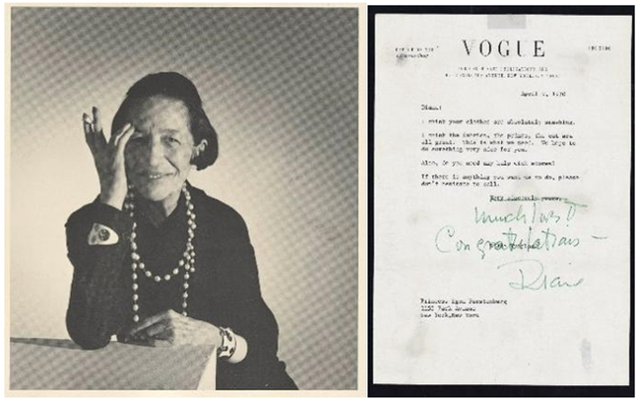 VOGUE
April 9, 1970
Diane:
I think your clothes are absolutely smashing.
I think the fabrics, the prints, the cut are
all great. This is what we need. We hope to
do something very nice for you.
Also, do you need any help with stores?
If there is anything you want us to do, please
don't hesitate to call.
Very sincerely yours,
much love
Congratulations —
Diana
Princess Egon Furstenberg
1150 Park Avenue
New York, New York